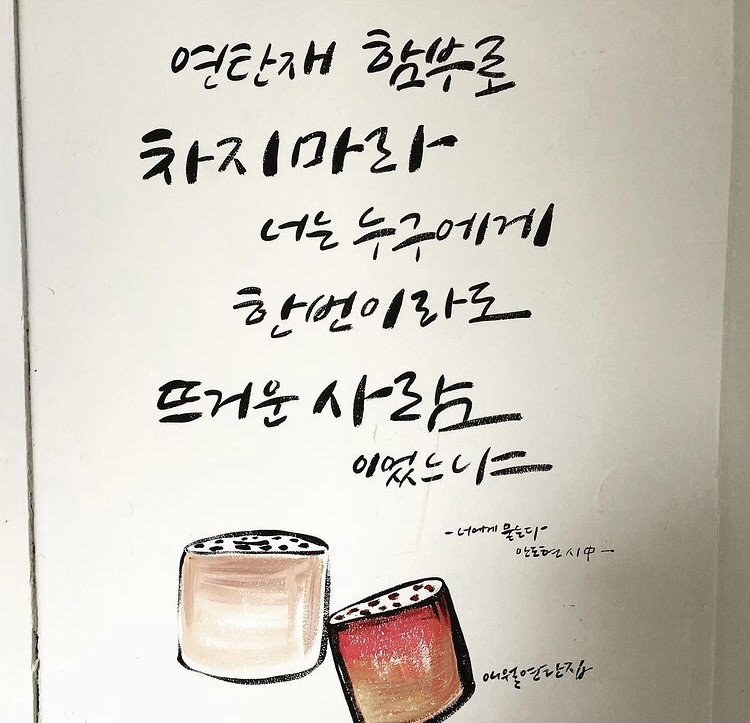 연탄재 함부로
차지마라
너는 누구에게
한번이라도
뜨거운 사람
이었느냐
-너에게 묻는다-
안도현 시中-
애월연탄집